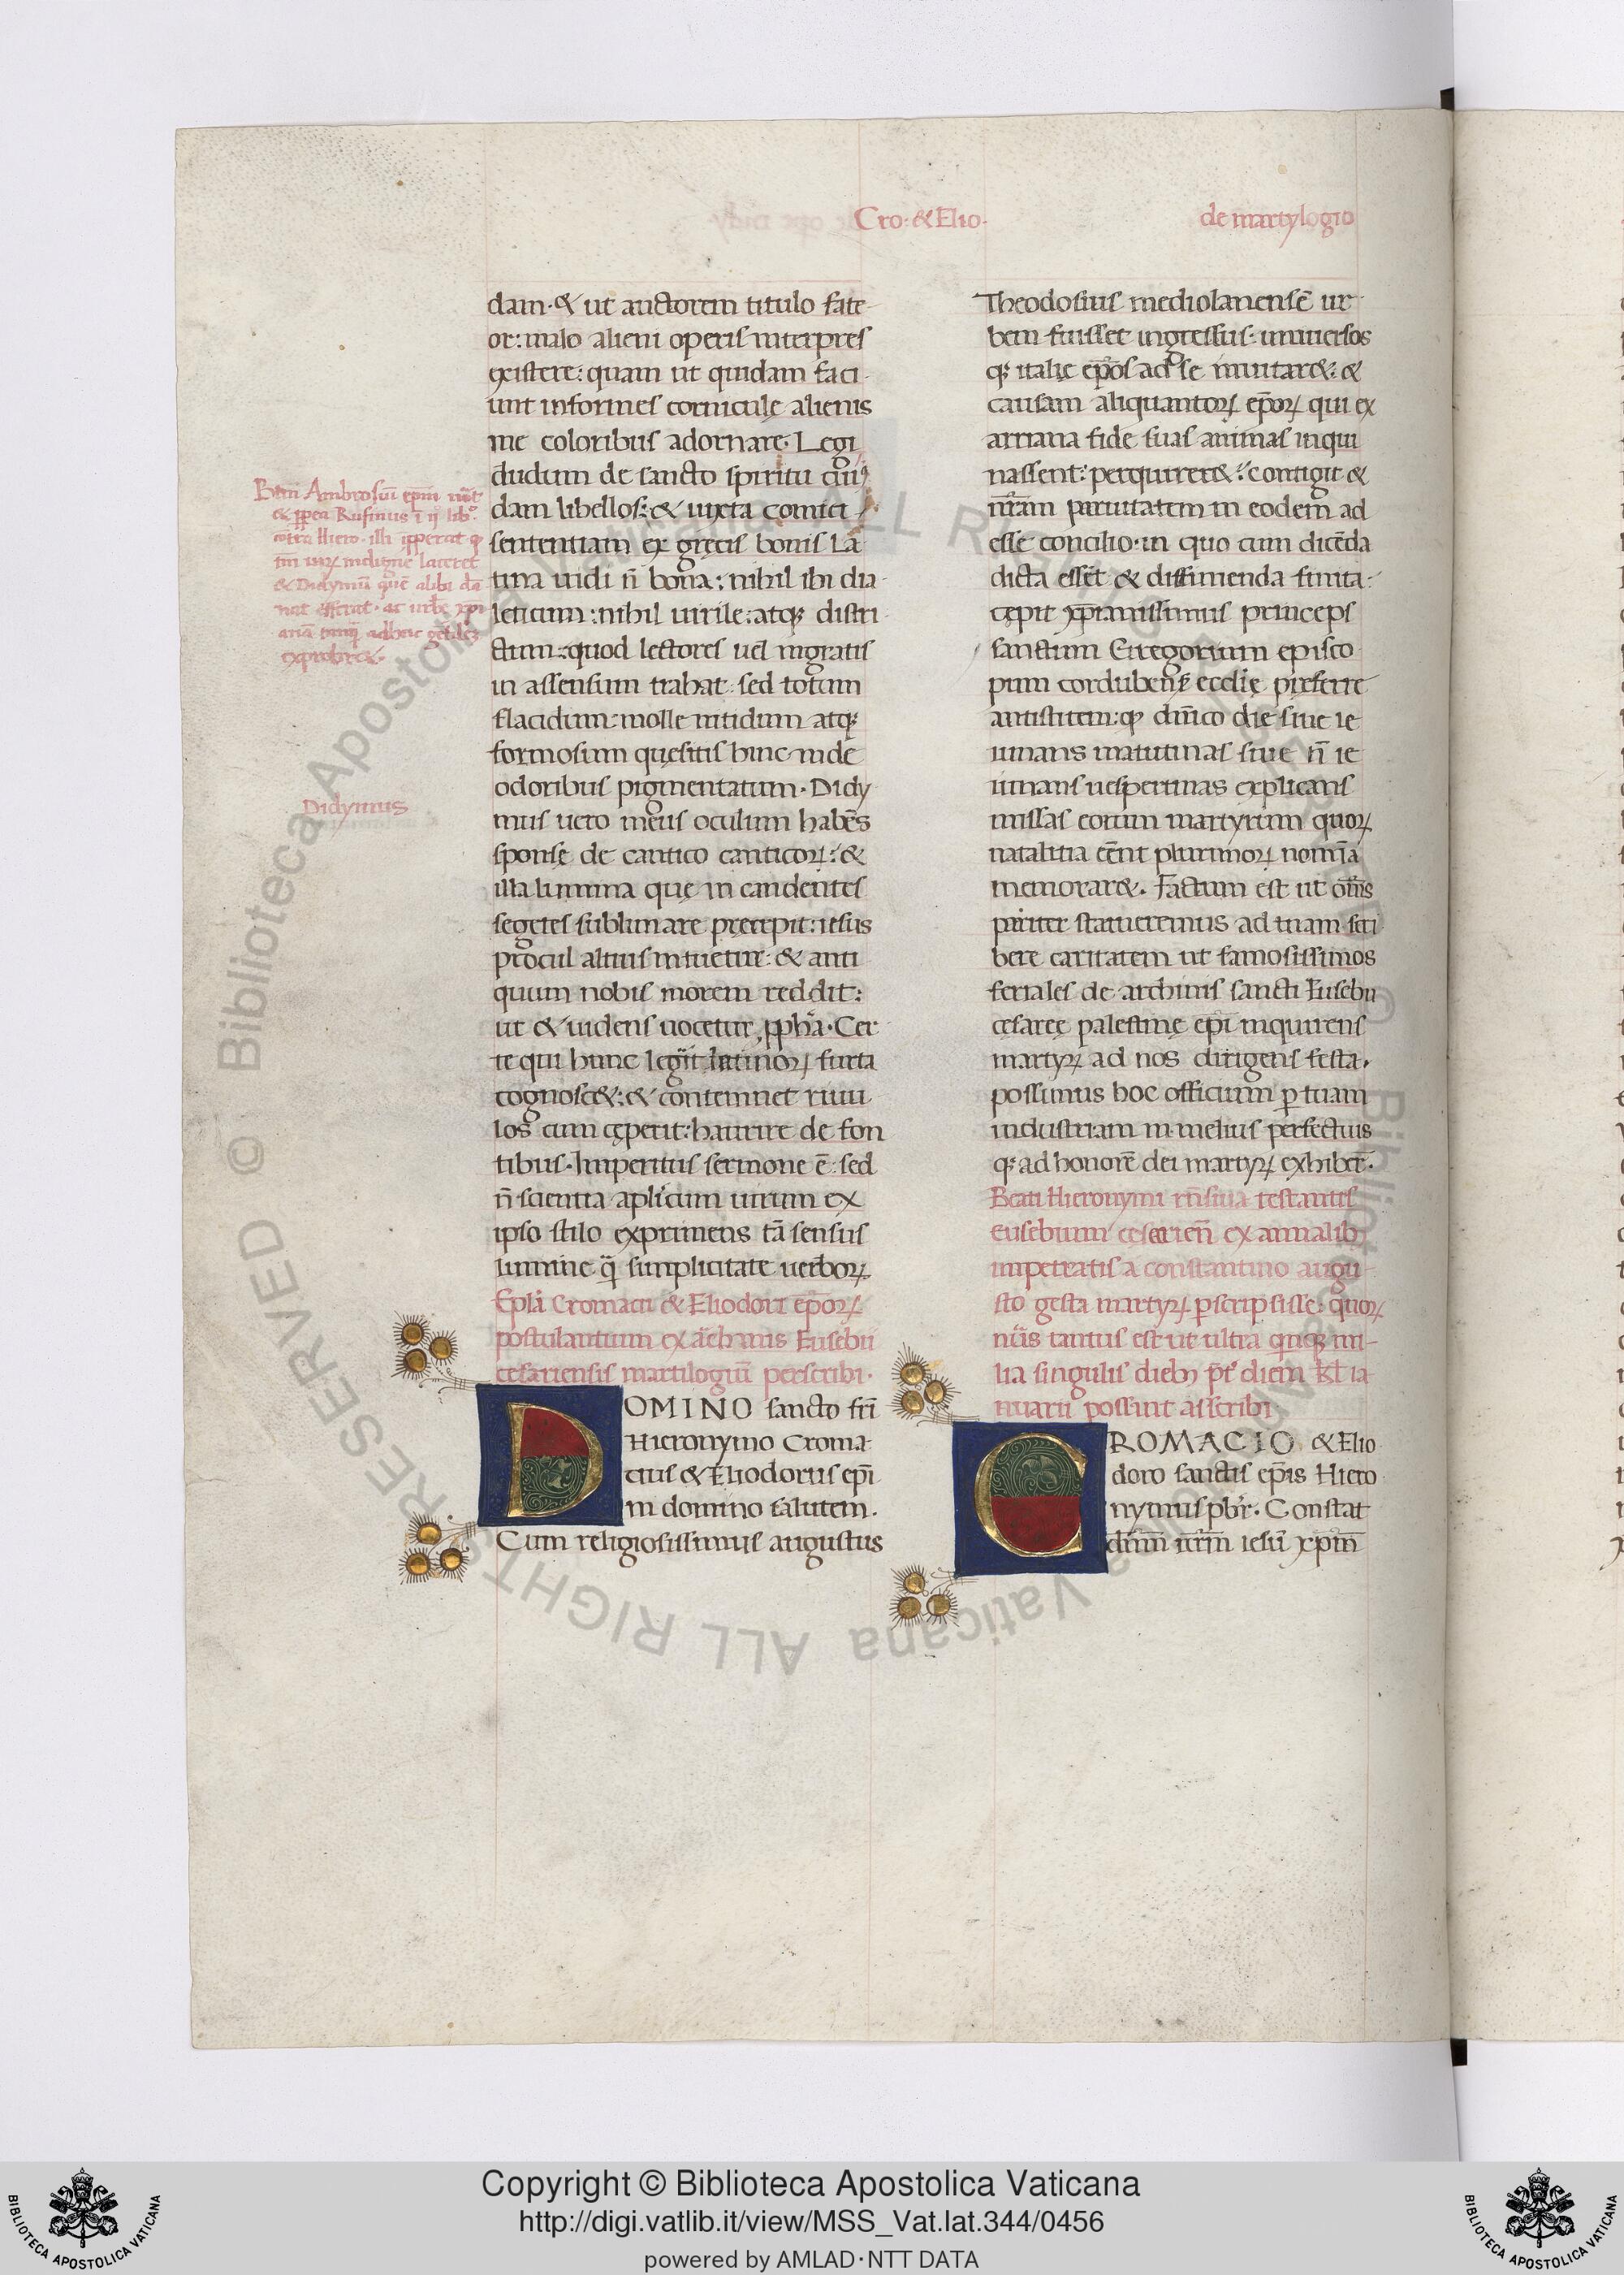 Cro· & Elio·
de martylogio
dam· & ut auctorem titulo fate
or: malo alieni operis interpres
existere: quam ut quidam faci
unt informes cornicule alienis
me coloribus adornare· Legi
dudum de sancto spiritu cuiꝰ
dam libellos: & iuxta comici
sententiam ex grecis bonis la
tina uidi n̄ bona: nihil ibi dia
leticum: nihil uirile: atqꝫ distri
ctum: quod lectores uel ingratis
in assensum trahat: sed totum
flacidum: molle nitidum atqꝫ
formosum quesitis hinc inde
odoribus pigmentatum· Didy
mus uero meus oculum habēs
sponsę de cantico canticoꝝ: &
illa lumina quę in candentes
segetes sublimare precepit: iesus
procul altius intuetur: & anti
quum nobis morem reddit:
ut & uidens uocetur ꝓpha· Cer
te qui hunc legit latinoꝝ furta
cognosc&: & contemnet riuu
los cum cęperit: haurire de fon
tibus· Imperitus sermone ē: sed
n̄ scientia aplicum uirum ex
ipso stilo exprimens tā sensus
lumine q̄ simplicitate uerboꝝ
Epla Cromacii & Eliodori epoꝝ
postulantium ex achiuis Eusebii
cesariensis martilogiū perscribi·
DOMINO sancto fri
Hieronymo Croma
cius & Eliodorus epi
in domino salutem.
Cum religiosissimus augustus
Theodosius mediolanensē ur
bem fuisset ingressus: uniuersos
qꝫ italię epos ad se inuitar&: &
causam aliquantoꝝ epoꝝ qui ex
arriana fide suas animas inqui
nassent: perquirer&: contigit &
nram paruitatem in eodem ad
esse concilio: in quo cum dicēda
dicta essēt & diffinienda finita:
cępit xpianissimus princeps
sanctum Gregorium episco
pum cordubens ecclię preferre
antistitem: ꝙ dnico die siue ie
iunans matutinas siue n̄ ie
iunans uespertinas explicans
missas eorum martyrum quoꝝ
natalitia eēnt plurimoꝝ nomīa
memorar&. Factum est ut oms
pariter statueremus ad tuam scri
bere caritatem ut famosissimos
feriales de archiuis sancti Eusebii
cesareę palestinę epi inquirens
martyꝝ ad nos dirigens festa·
possimus hoc officium ꝑ tuam
industriam in melius perfectius
qꝫ ad honorē dei martyꝝ exhibere·
Beati Hieronymi rn̄siua testantis
eusebium cesarien̄ ex annalibꝫ
impetratis a constantino augu
sto gesta martyꝝ ꝑscripsisse: quoꝝ
nūs tantus est ut ultra quīqꝫ mi
lia singulis diebꝫ p̄t diem kl ia
nuarii possint asscribi
CROMACIO & Elio
doro sanctis epis Hiero
nymus pbr· Constat
dnm nrm iesū xpm
Btm Ambrosiū epm
Didymus
Copyright © Biblioteca Apostolica Vaticana
http://digi.vatlib.it/view/MSS_Vat.lat.344/0456
powered by AMLAD·NTT DATA
BIBLIOTECA APOSTOLICA VATICANA
BIBLIOTECA APOSTOLICA VATICANA